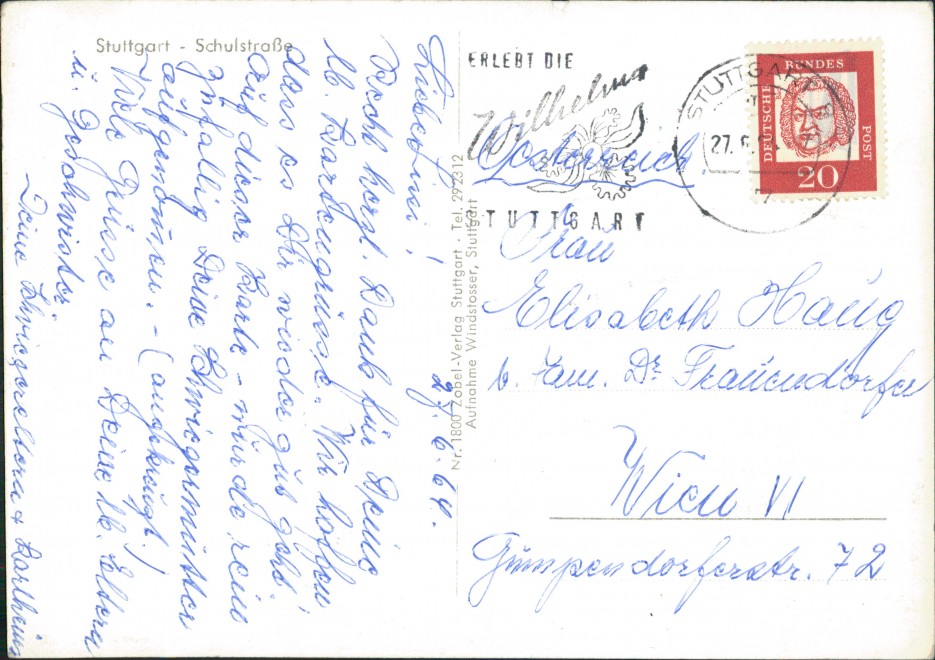 Stuttgart - Schulstraße
Liebe Erni!
27. 6. 64.
Recht herzl. Dank für Deine
lb. Kartengrüsse. Wir hoffen
dass es Dir wieder gut geht.
Auf dieser Karte - wurde rein
zufällig Deine Schwiegermutter
aufgenommen. - (angekreuzt.)
Viele Grüsse an Deine lb. Eltern
u. Geschwister
Deine Schwiegereltern & Karlheinz
Nr. 1800 Zobel-Verlag Stuttgart · Tel. 292312
Aufnahme Windstosser, Stuttgart
ERLEBT DIE
Wilhelma
STUTTGART
STUTTGART
27. 6.
DEUTSCHE BUNDES POST
20
Oesterreich
Frau
Elisabeth Haug
b. Fam. Dr. Frauendorfer
Wien VI
Gumpendorferstr. 72